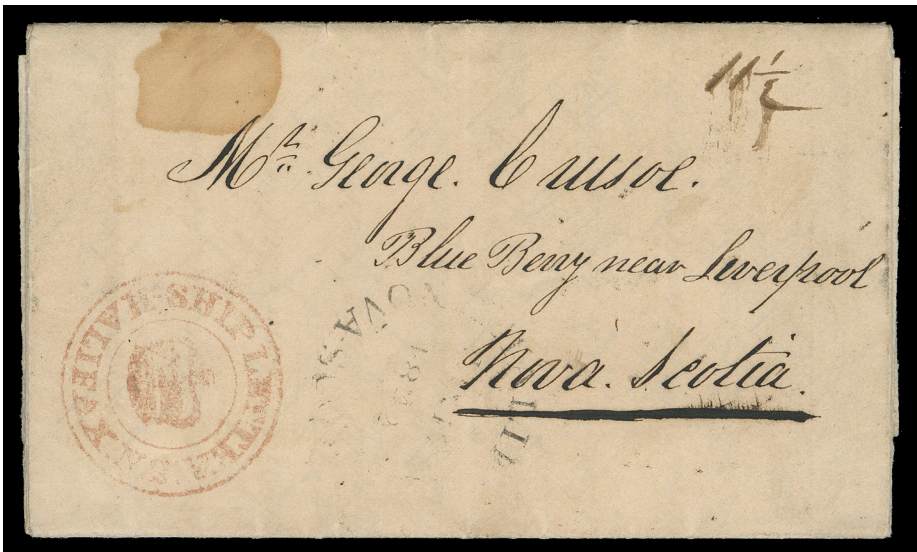 11½
Mr. George. Cussoe.
Blue Berry near Leverpool
Nova. Scotia.
SHIP LETTER
N.S.
HALIFAX
OVA-S